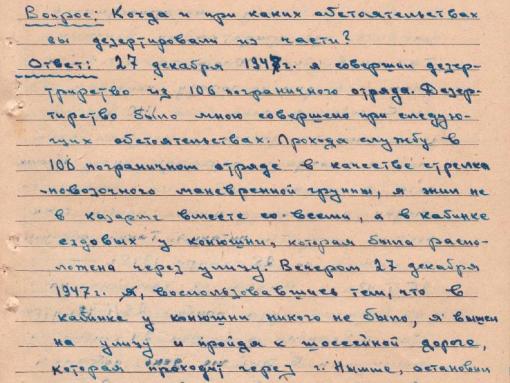 Вопрос: Когда и при каких обстоятельствах
вы дезертировали из части?
Ответ: 27 декабря 1947 г. я совершил дезер-
тирство из 106 пограничного отряда. Дезер-
тирство было мною совершено при следую-
щих обстоятельствах. Проходя службу в
106 пограничном отряде в качестве стрелка
-повозочного маневренной группы, я жил не
в казарме вместе со всеми, а в кабинке
ездовых у конюшни, которая была распо-
ложена через улицу. Вечером 27 декабря
1947 г. я, воспользовавшись тем, что в
кабинке у конюшни никого не было, я вышел
на улицу и пройдя к шоссейной дороге,
которая проходит через г. остановил